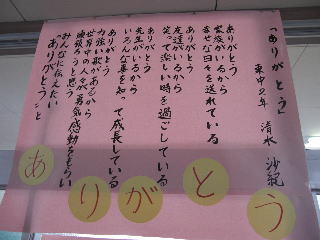 「ありがとう」
東中2年 清水 沙紀
ありがとう
家族がいるから
幸せな日々を送れている
ありがとう
友達がいるから
笑って楽しい時を過ごしている
ありがとう
先生がいるから
いろんな事を知って成長している
ありがとう
力強い歌があるから
世界中の人々が勇気感動をもらい
頑張ろうと思う
みんなに伝えたい
「ありがとう」と
ありがとう